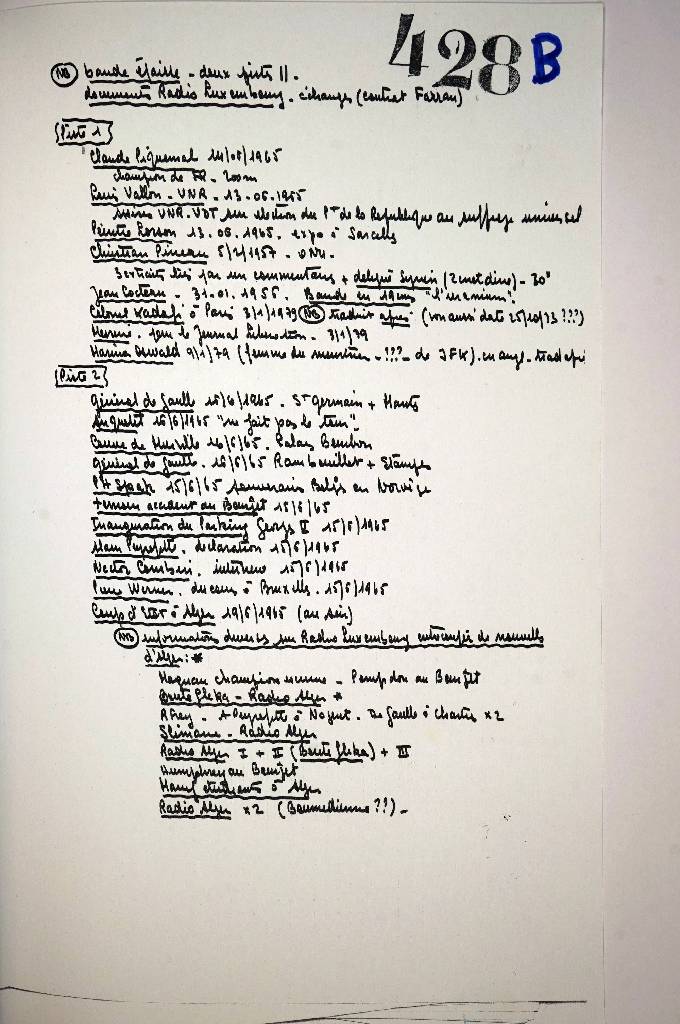 428 B
NB bande épaisse - deux pistes II.
documents Radio Luxembourg. échanges (contrat Farran)
Piste 1
Claude Piquemal 14/08/1965
champion de FR - 200m
Louis Vallon - UNR - 13.06.1965
UNR-UDT sur élection du Pt de la République au suffrage universel
Peintre 13.06.1965. expo à Sarcelles
Christian Pineau 5/2/1957 - ONU.
3 extraits liés par un commentaire + délégué Syrien (2 mots dire) - 30"
Jean Cocteau - 31.01.1956. Bande en 19 cms
Colonel Kadafi à Paris 3/1/1979 NB traduit après (voir aussi date 25/10/73 ???)
le Journal Libération. 3/1/79
Marina Oswald 9/1/79 (femme du meurtrier - ??? - de JFK). en angl. trad après
Piste 2
général de Gaulle 15/6/1965. St germain + Nants
Anquetil 15/6/1965 "ne fait pas le tour".
Couve de Murville 16/6/65. Palais Bourbon
général de Gaulle. 18/6/65 Rambouillet + Etampes
PH Spaak 15/6/65 souverains Belges en Norvège
témoin accident au Bourget 15/6/65
Inauguration du Parking Georges V 15/6/1965
Alain Peyrefitte. déclaration 15/6/1965
interview 15/6/1965
Pierre Werner. discours à Bruxelles. 15/6/1965
Coup d'Etat à Alger 19/6/1965 (au soir)
NB informations diverses sur Radio Luxembourg entrecoupées de nouvelles
d'Alger: *
champion - Pompidou au Bourget
Bouteflika - Radio Alger *
R Frey. A Peyrefitte à Nogent. De Gaulle à Chartres x2
Slimane - Radio Alger
Radio Alger I + II (Bouteflika) + III
Humphrey au Bourget
étudiants à Alger
Radio Alger x2 (Boumedienne ??) -